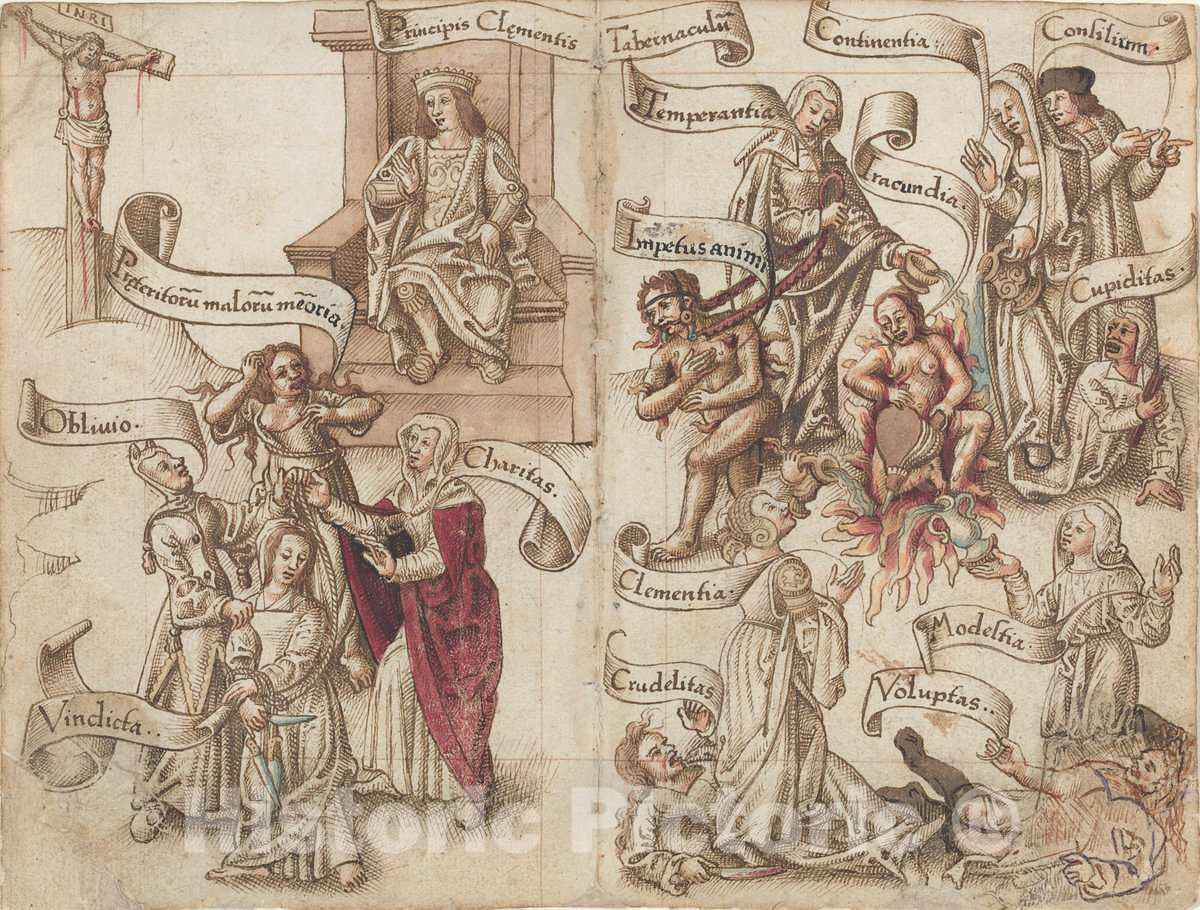 INRI
Principis Clęmentis Tabernaculū
Continentia.
Consilium.
Temperantia
Iracundia.
Impetus animi
Cupiditas.
Pręteritorū malorū mēoria.
Oblivio.
Charitas.
Clementia.
Modestia.
Vindicta..
Crudelitas
Voluptas..
Historic Pictoric ®